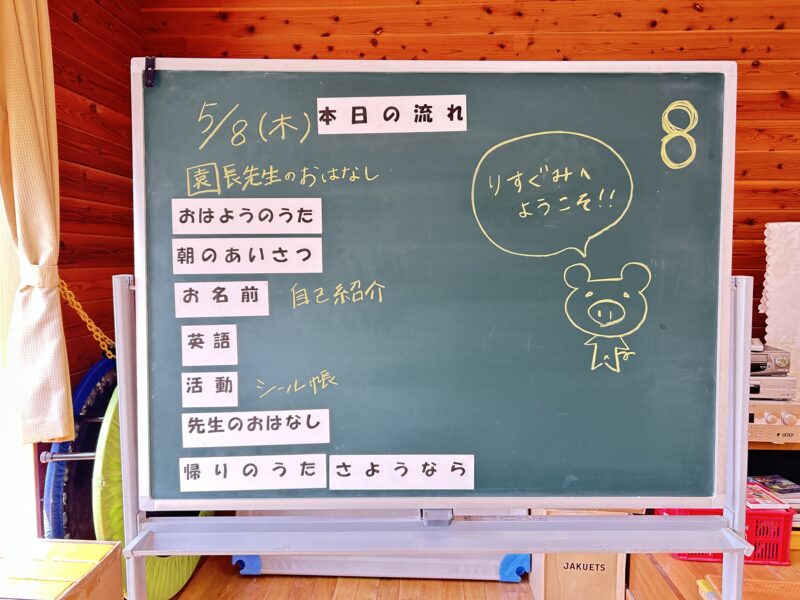 5/8(木) 本日の流れ
8
園長先生のおはなし
りすぐみへ
ようこそ!!
おはようのうた
朝のあいさつ
お名前 自己紹介
英語
活動 シール帳
先生のおはなし
帰りのうた さようなら
JAKUETS